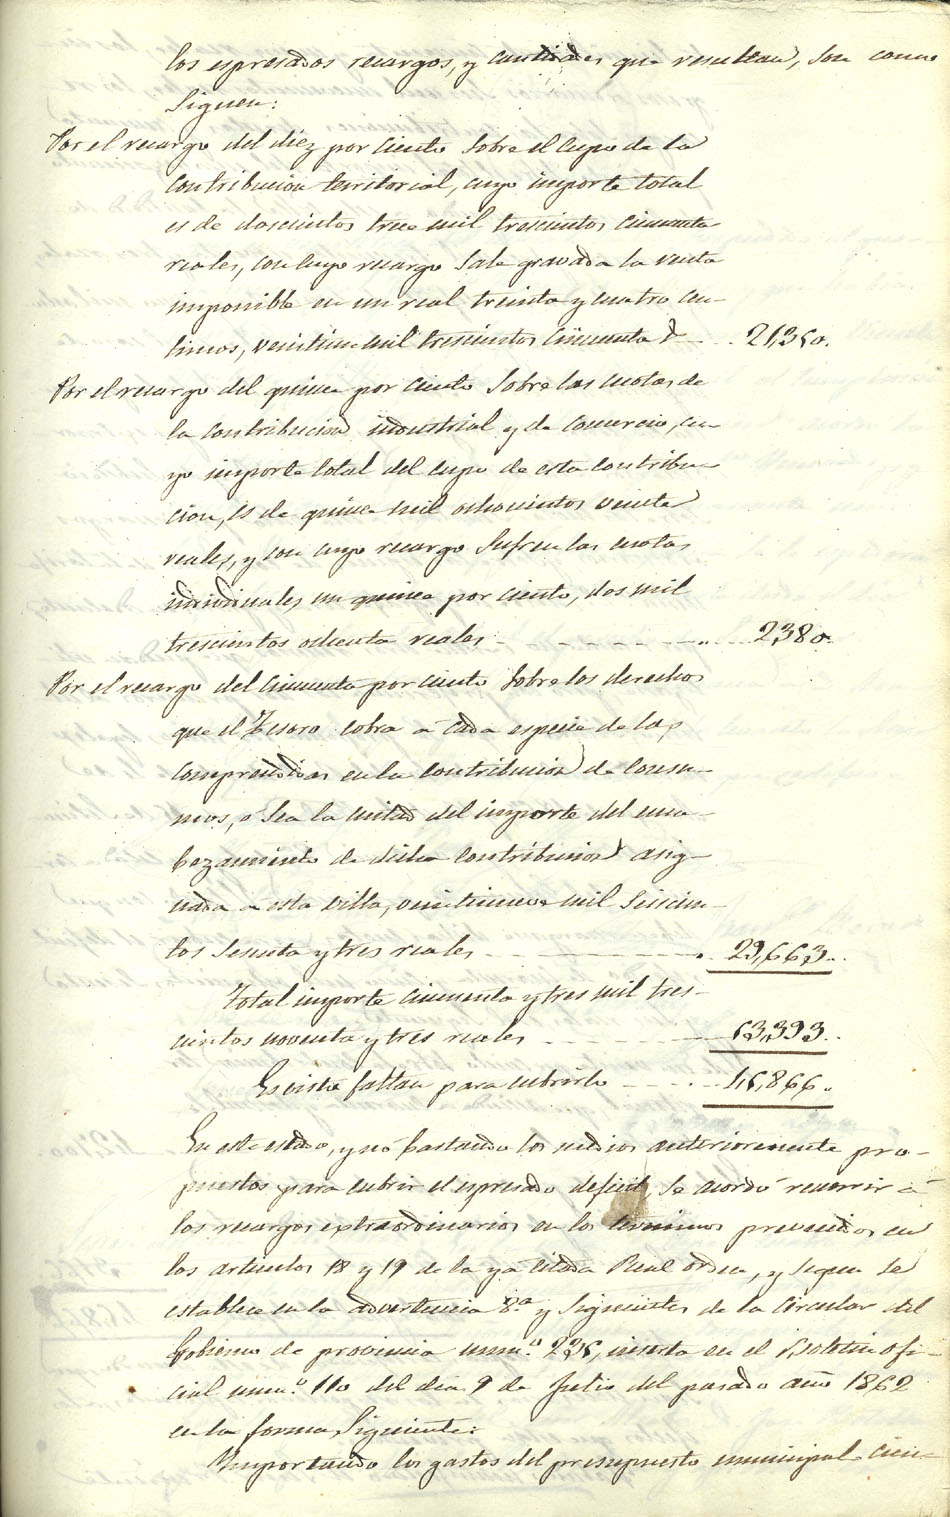 los espresados recargos, y cantidades que resultan, son como
siguen:
Por el recargo del diez por ciento sobre el cupo de la
contribucion territorial, cuyo importe total
es de doscientos trece mil trescientos cincuenta
reales, con cuyo recargo sale gravada la renta
imponible en un real treinta y cuatro cen-
timos, veintiun mil trescientos cincuenta r 21,350.
Por el recargo del quince por ciento sobre las cuotas de
la contribucion industrial y de comercio, cu-
yo importe total del cupo de esta contribu-
cion, es de quince mil ochocientos veinte
reales, y con cuyo recargo sufren las cuotas
individuales un quince por ciento, dos mil
trescientos ochenta reales 2380.
Por el recargo del cincuenta por ciento sobre los derechos
que el Tesoro cobra a cada especie de las
comprendidas en la contribucion de consu-
mos, o sea la mitad del importe del enca-
bezamiento de dicha contribucion asig-
nada a esta villa, veintinueve mil seiscien-
tos sesenta y tres reales 29,663.
Total importe cincuenta y tres mil tres-
cientos noventa y tres reales 53,393.
Es visto faltan para cubrirlo 15,866.
En este estado, y nó bastando los medios anteriormente pro-
puestos para cubrir el espresado deficit, se acordó recurrir á
los recargos extraordinarios en los terminos prevenidos en
los articulos 18 y 19 de la yá citada Real orden, y segun se
establece en la advertencia 8.ª y siguientes de la circular del
Gobierno de provincia num.º 235, inserta en el Boletin ofi-
cial num.º 110 del dia 9 de Julio del pasado año 1862
en la forma siguiente:
Importando los gastos del presupuesto municipal cien-